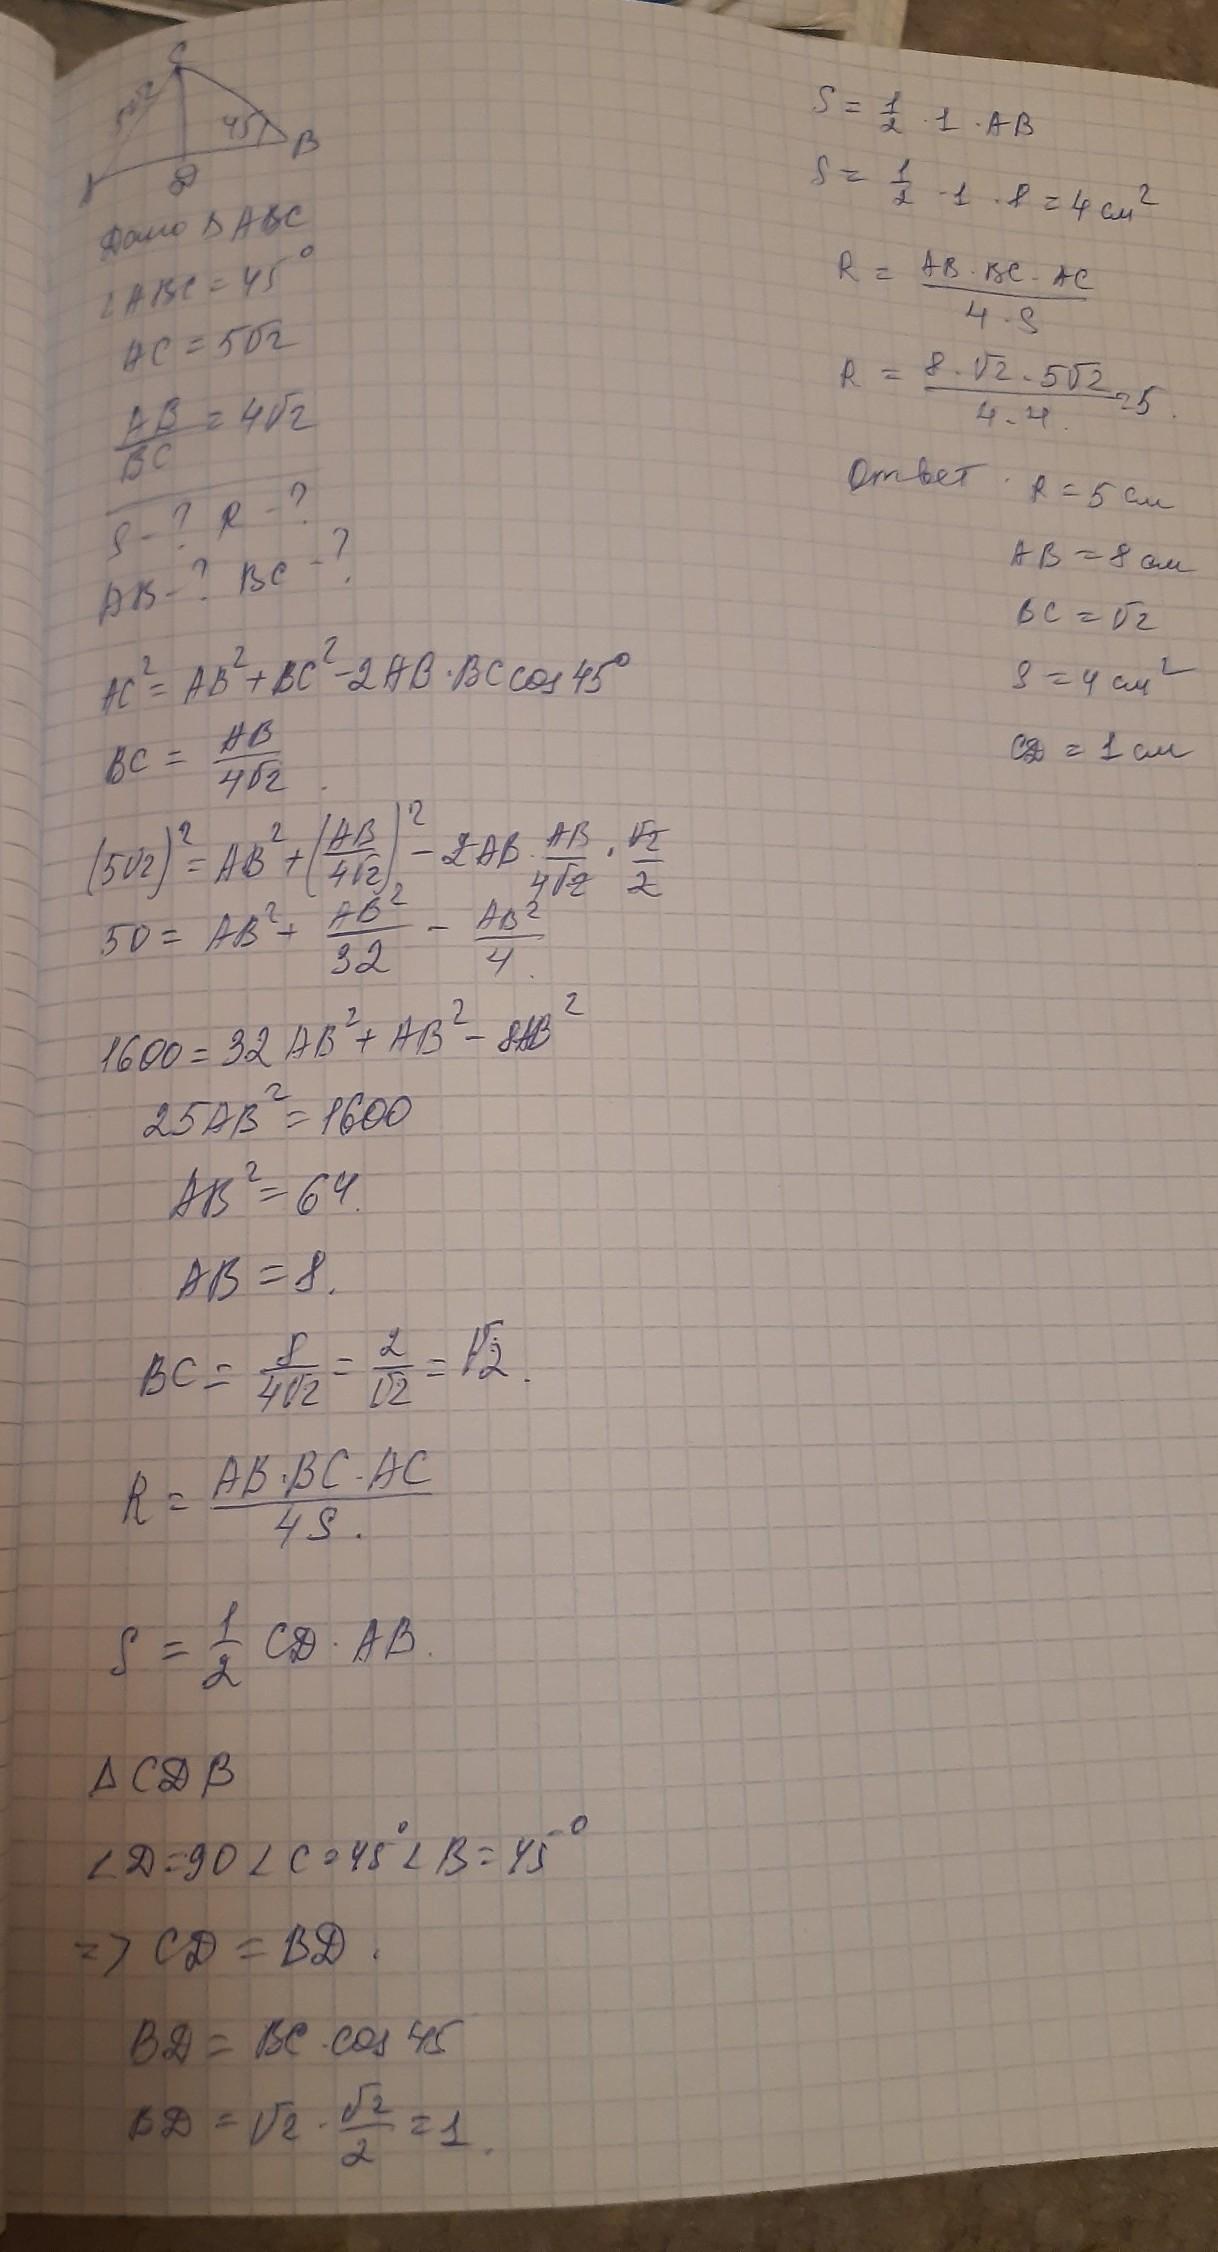 C
5√2
45
B
D
Дано ∆ ABC
∠ABC = 45°
AC = 5√2
AB/BC = 4√2
S - ? R - ?
AB - ? BC - ?
AC² = AB² + BC² - 2AB · BC cos 45°
BC = AB/4√2.
(5√2)² = AB² + (AB/4√2)² - 2AB · AB/4√2 · √2/2
50 = AB² + AB²/32 - AB²/4.
1600 = 32 AB² + AB² - 8AB²
25AB² = 1600
AB² = 64.
AB = 8.
BC = 8/4√2 = 2/√2 = √2.
R = AB · BC · AC/4S.
S = 1/2 CD · AB.
∆ CDB
∠D = 90 ∠C = 45° ∠B = 45°
=> CD = BD.
BD = BC · cos 45
BD = √2 · √2/2 = 1.
S = 1/2 · 1 · AB
S = 1/2 · 1 · 8 = 4 см²
R = AB · BC · AC/4 · S
R = 8 · √2 · 5√2/4 · 4. = 5.
Ответ. R = 5 см
AB = 8 см
BC = √2
S = 4 см²
CD = 1 см